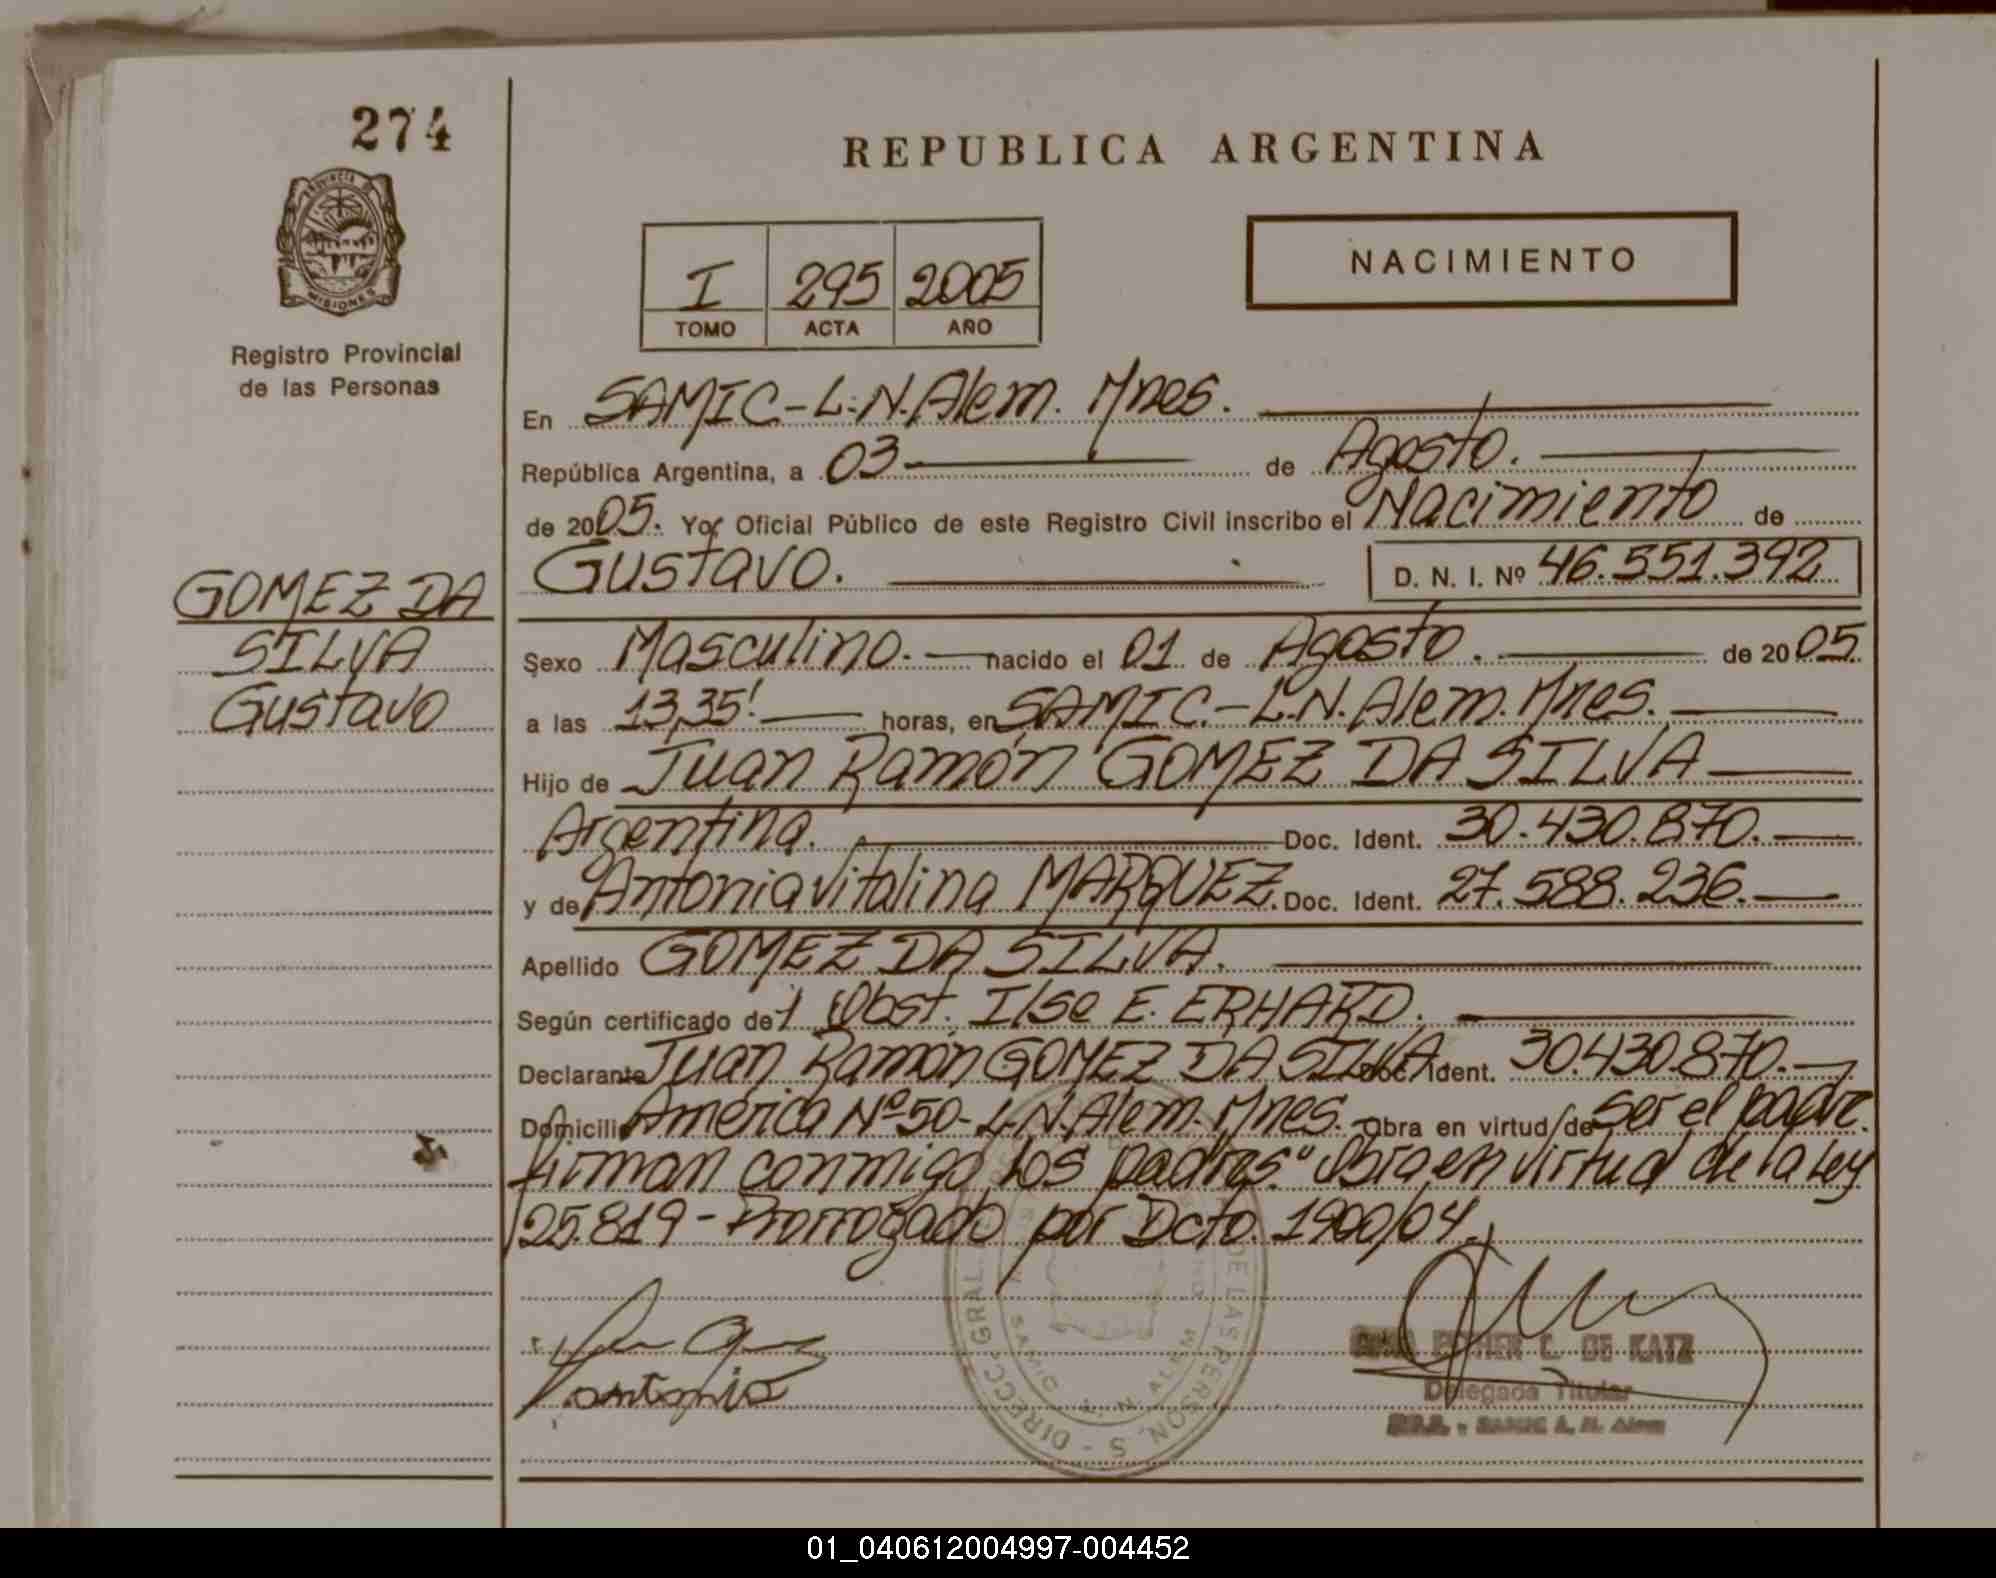 274
REPUBLICA ARGENTINA
PROVINCIA DE
MISIONES
Registro Provincial
de las Personas
I 295 2005
TOMO ACTA AÑO
NACIMIENTO
En SAMIC-L.N.Alem. Mnes.
República Argentina, a 03 de Agosto.
de 2005. Yo, Oficial Público de este Registro Civil inscribo el Nacimiento de
Gustavo. D. N. I. Nº 46.551.392
GOMEZ DA
SILVA
Gustavo
Sexo Masculino. nacido el 01 de Agosto. de 2005
a las 13,35' horas, en SAMIC.-L.N.Alem. Mnes.
Hijo de Juan Ramón GOMEZ DA SILVA
Argentina. Doc. Ident. 30.430.870.
y de Antonia Vitalina MARQUEZ. Doc. Ident. 27.588.236.
Apellido GOMEZ DA SILVA.
Según certificado de Obst. Ilse E. ERHARD.
Declarante Juan Ramón GOMEZ DA SILVA Doc. Ident. 30.430.870.
Domicilio América Nº50-L.N.Alem.Mnes. Obra en virtud de ser el padre.
firman conmigo los padres." Obra en virtud de la Ley
25.819-Prorrogado por Dcto. 1900/04.
antonia
ESTHER C. DE KATZ
Delegada Titular
DIRECC. GRAL. DE LAS PERSONAS
SAMIC L. N. ALEM
01_040612004997-004452